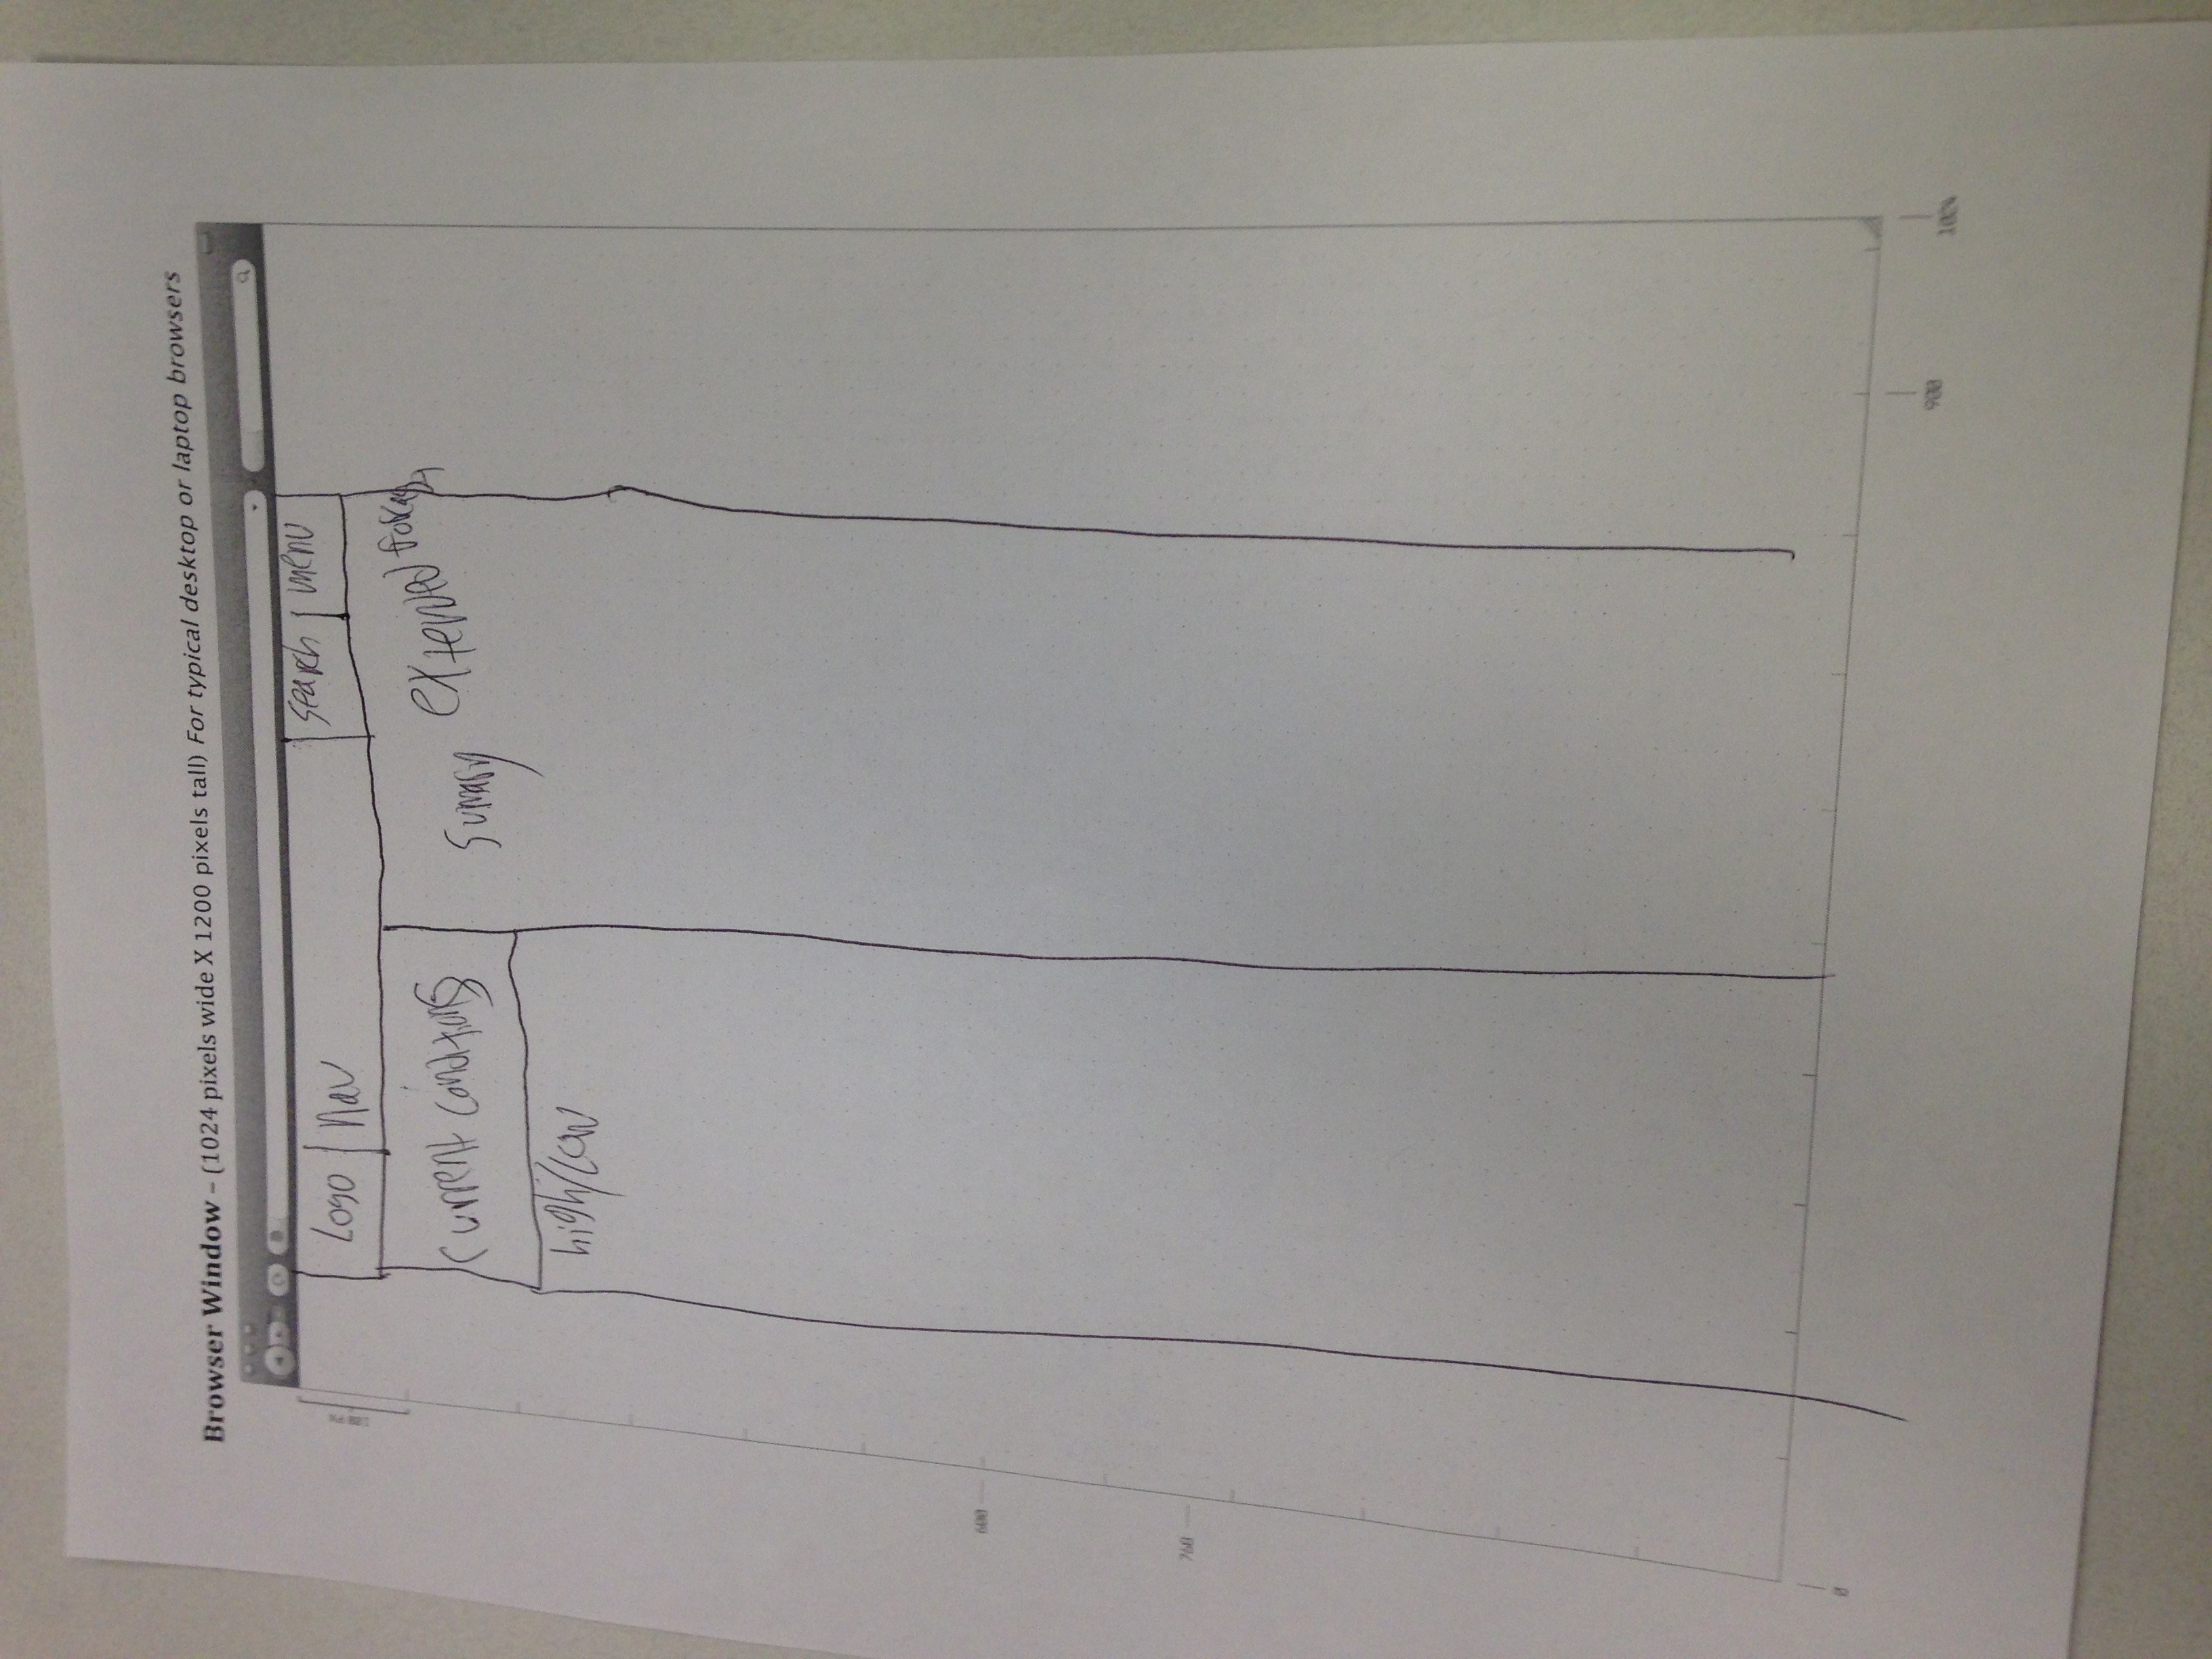 Browser Window – (1024 pixels wide X 1200 pixels tall) For typical desktop or laptop browsers
Logo nav search menu
Current Conditions
Sumary extented
high/Low
600
760
0
900
1024